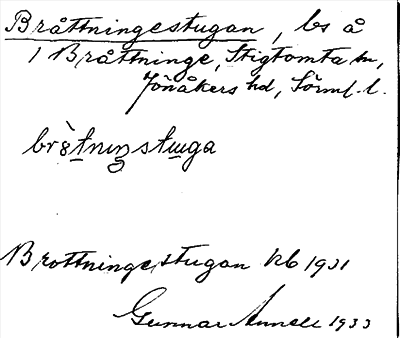 Bråttningestugan, bs å
1 Bråttninge, Stigtomta sn,
Jönåkers hd, Sörml. l.
Brottningestugan hb 1931
Gunnar Annell 1933